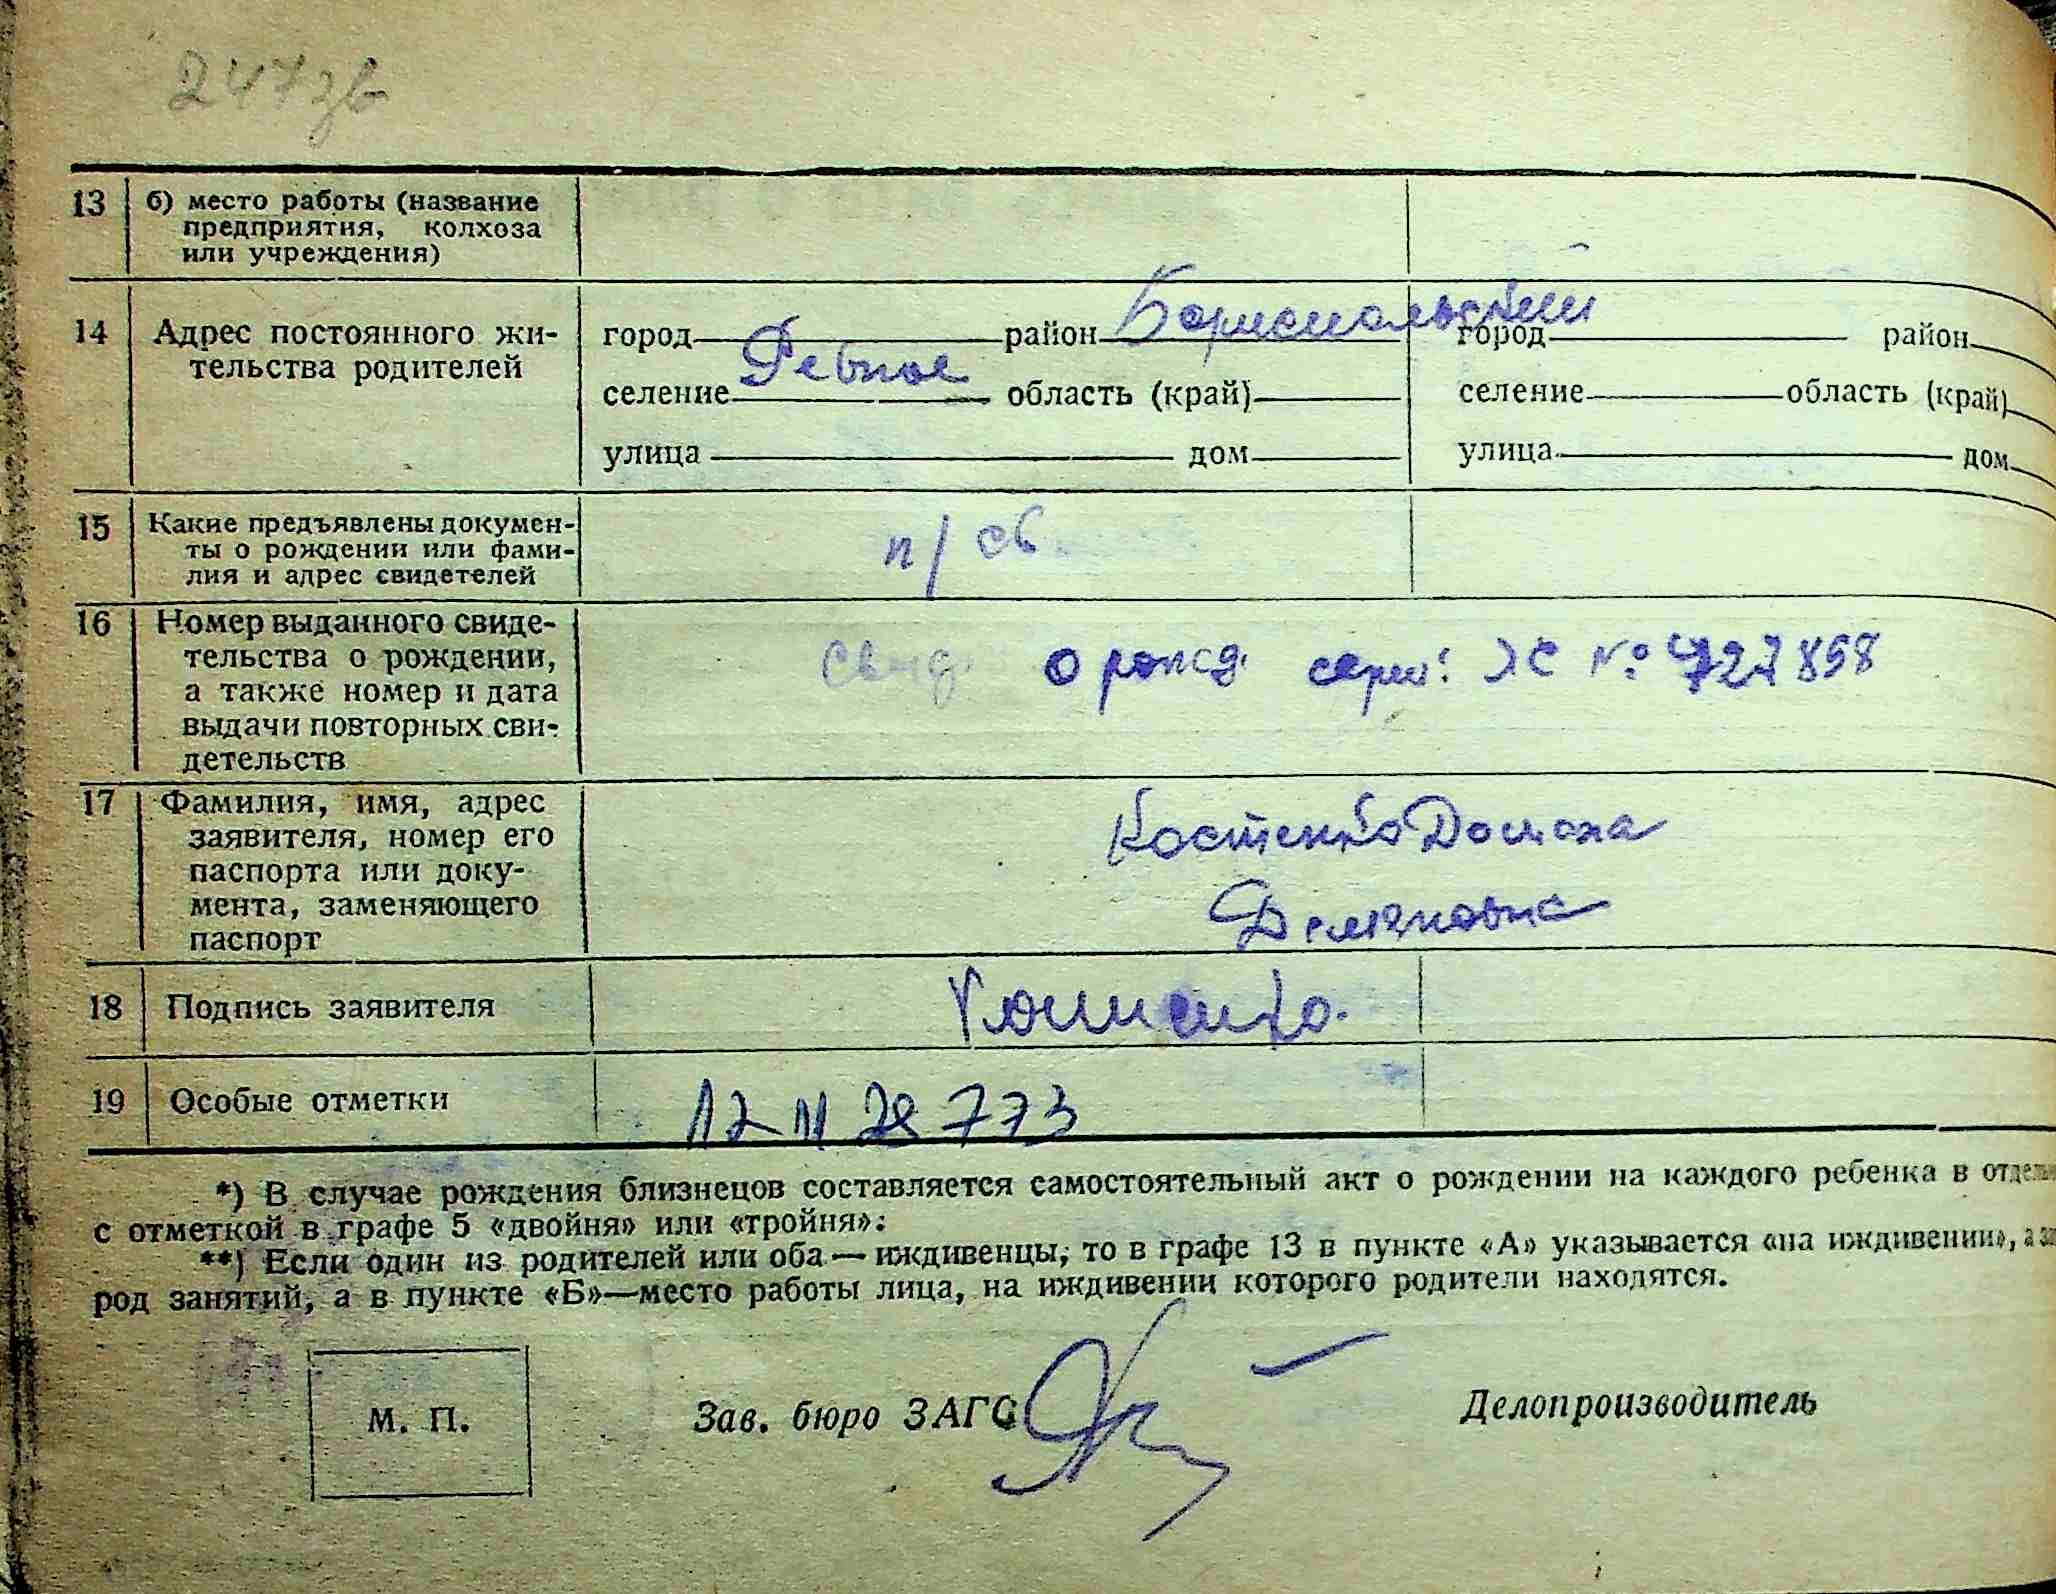 247зв
13 б) место работы (название
предприятия, колхоза
или учреждения)
14 Адрес постоянного жи-
тельства родителей
город район Бориспольский
селение Ревное область (край)
улица дом
город район
селение область (край)
улица дом
15 Какие предъявлены докумен-
ты о рождении или фами-
лия и адрес свидетелей
п/св.
16 Номер выданного свиде-
тельства о рождении,
а также номер и дата
выдачи повторных сви-
детельств
свид. о рожд. серии: ЖС № 727858
17 Фамилия, имя, адрес
заявителя, номер его
паспорта или доку-
мента, заменяющего
паспорт
Костенко Домаха
Демяновна
18 Подпись заявителя
19 Особые отметки
12 11 28 773
*) В случае рождения близнецов составляется самостоятельный акт о рождении на каждого ребенка в
с отметкой в графе 5 «двойня» или «тройня».
**) Если один из родителей или оба — иждивенцы, то в графе 13 в пункте «А» указывается «на иждивении», а
род занятий, а в пункте «Б»—место работы лица, на иждивении которого родители находятся.
М. П.
Зав. бюро ЗАГС
Делопроизводитель